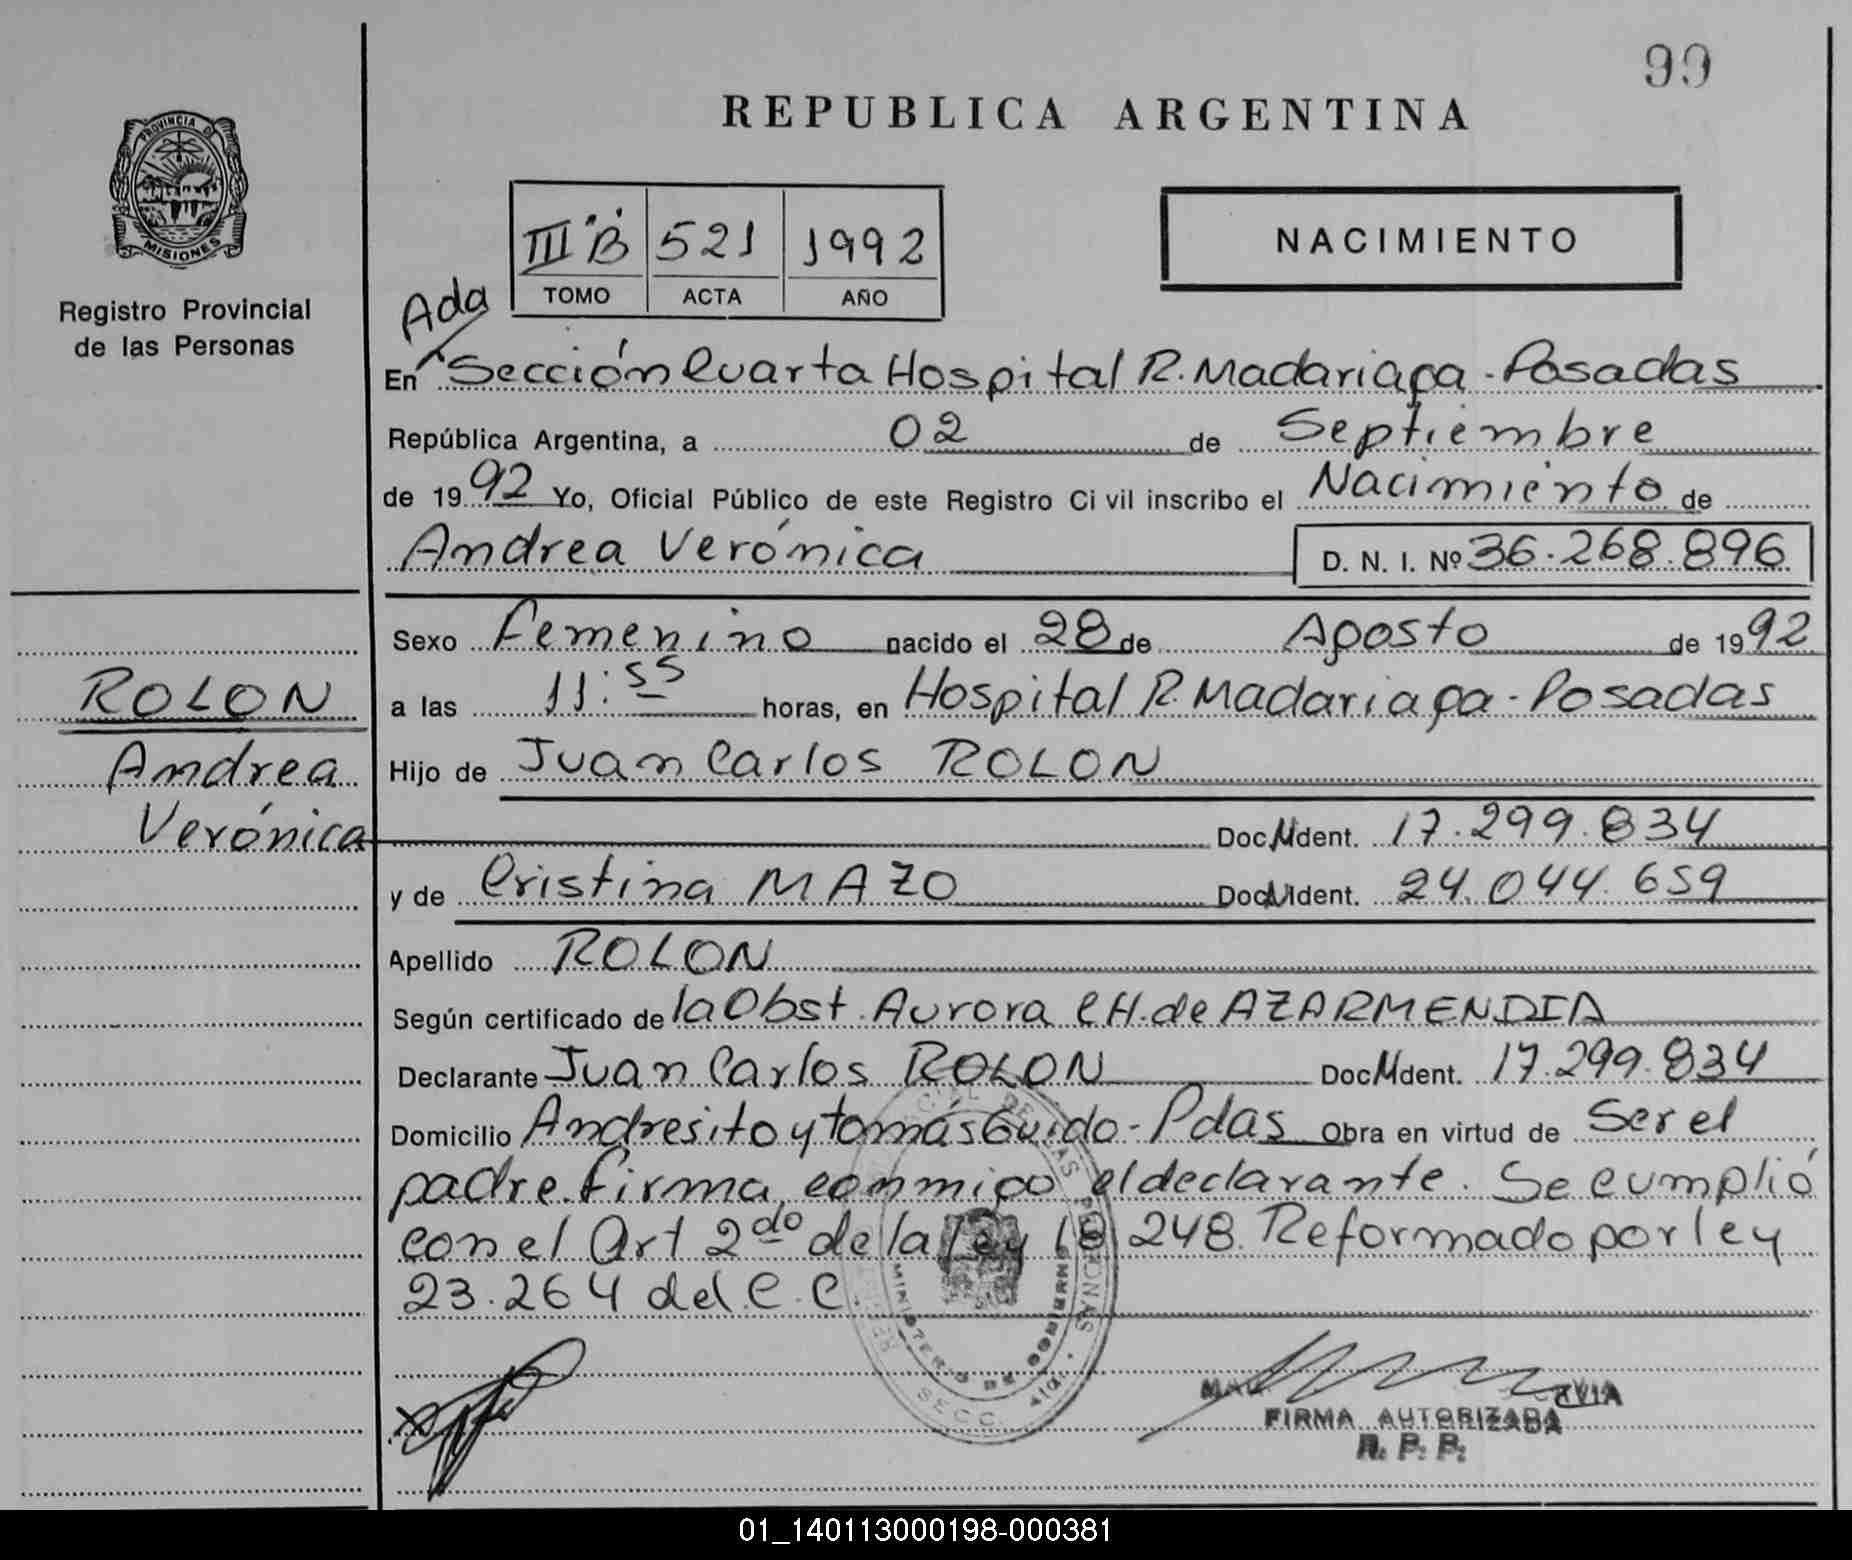 99
REPUBLICA ARGENTINA
PROVINCIA DE
MISIONES
Registro Provincial
de las Personas
III "B" 521 1992
TOMO ACTA AÑO
NACIMIENTO
Ada
En Sección Cuarta Hospital R. Madariaga - Posadas
República Argentina, a 02 de Septiembre
de 1992 Yo, Oficial Público de este Registro Civil inscribo el Nacimiento de
Andrea Verónica D. N. I. Nº 36.268.896
Sexo Femenino nacido el 28 de Agosto de 1992
ROLON
a las 11:55 horas, en Hospital R. Madariaga - Posadas
Andrea
Hijo de Juan Carlos ROLON
Verónica
Doc. Ident. 17.299.834
y de Cristina MAZO Doc. Ident. 24.044.659
Apellido ROLON
Según certificado de la Obst. Aurora C H. de AZARMENDIA
Declarante Juan Carlos ROLON Doc. Ident. 17.299.834
Domicilio Andresito y tomás Guido - Pdas Obra en virtud de Ser el
padre. firma conmigo el declarante. Se cumplió
con el Art 2do de la Ley 18.248. Reformado por ley
23.264 del C.C.
MINISTERIO DE GOBIERNO
SECC. 4ta.
FIRMA AUTORIZADA
R. P. P.
01_140113000198-000381